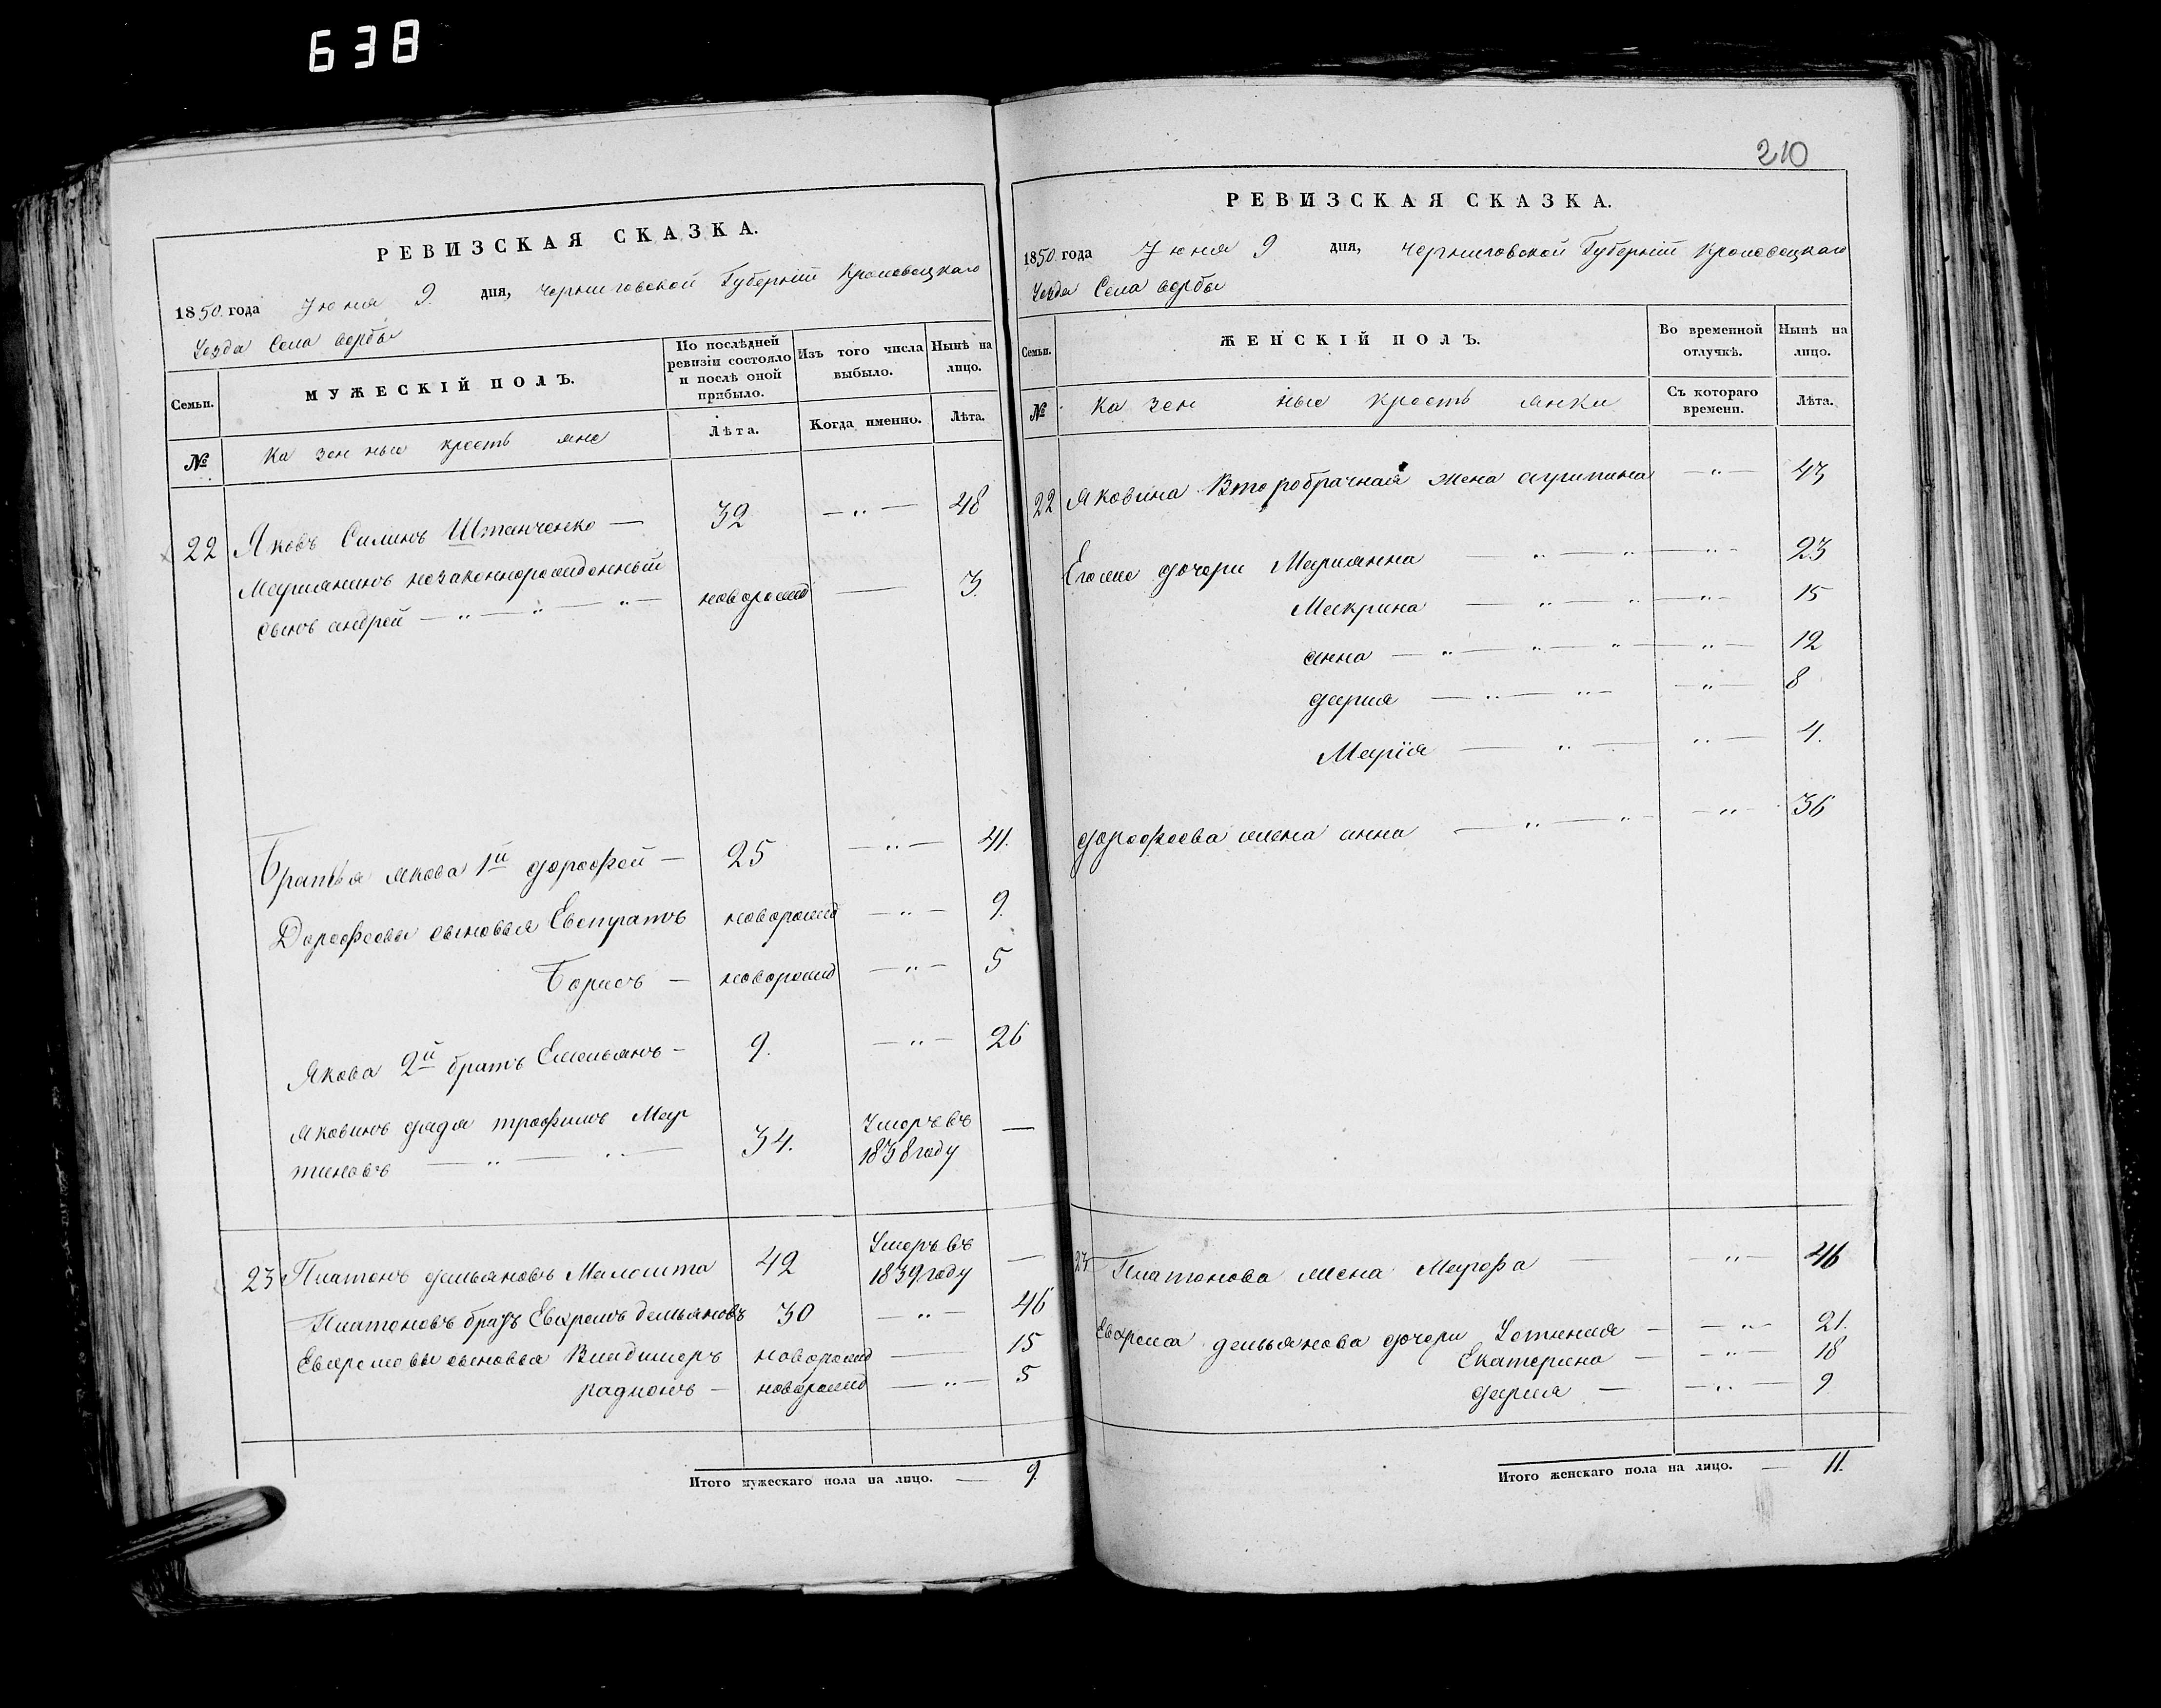 638
РЕВИЗСКАЯ СКАЗКА.
1850 года Июня 9. дня, Черниговской Губерніи Кролевецкаго
Уезда Села Вербы
Семьи.
МУЖЕСКІЙ ПОЛЪ.
По послѣдней ревизіи состояло и послѣ оной прибыло.
Изъ того числа выбыло.
Нынѣ на лицо.
№
Казенные крестьяне
Лѣта.
Когда именно.
Лѣта.
22 Яковъ Силинъ Штанченко — 32 — " — 48
Марианинъ незаконнорожденный
сынъ андрей — " — " — " — новорожд — 3.
Братья якова 1й дорофей — 25 — " — 41.
Дорофеевы сыновья Евстратъ новорожд — " — 9.
Борисъ — новорожд — " — 5
Якова 2й братъ Емельянъ — 9. — " — 26
яковинъ дядя трофимъ Мар
тиновъ — " — " — 34. Умеръ въ 1838 году —
23 Платонъ демьяновъ Малошта 42 Умеръ въ 1839 году —
Платоновъ братъ Евхремъ демьяновъ 30 — " — 46
Евхремовы сыновья Владимеръ новорожд — 15
радионъ — новорожд — " — 5
Итого мужескаго пола на лицо. — 9.
210
РЕВИЗСКАЯ СКАЗКА.
1850 года Июня 9 дня, Черниговской Губерніи Кролевецкаго
Уезда Села вербы
Семьи.
ЖЕНСКІЙ ПОЛЪ.
Во временной отлучкѣ.
Нынѣ на лицо.
№
Казенные крестьянки
Съ котораго времени.
Лѣта.
22 Яковина Второбрачная жена агрипина — " — 43
Егоже дочери Марианна — " — " — " — 23
Макрина — " — " — " — 15
анна — " — " — " — " — 12
дария — " — " — " — 8
Марія — " — " — 4.
дорофеева жена анна — " — " — " — 36
23 Платонова жена Марфа — " — 46
Евхрема демьянова дочери — " — 21.
Екатерина — " — 18
дария — " — 9
Итого женскаго пола на лицо. — 11.